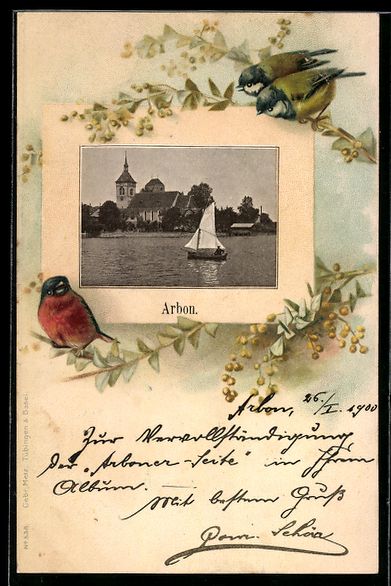 Arbon.
Arbon, 26./I. 1900
Zur Vervollständigung
der „Arboner-Seite" in Ihrem
Album. —
Mit bestem Gruß
Gebr. Metz, Tübingen & Basel.
No 338